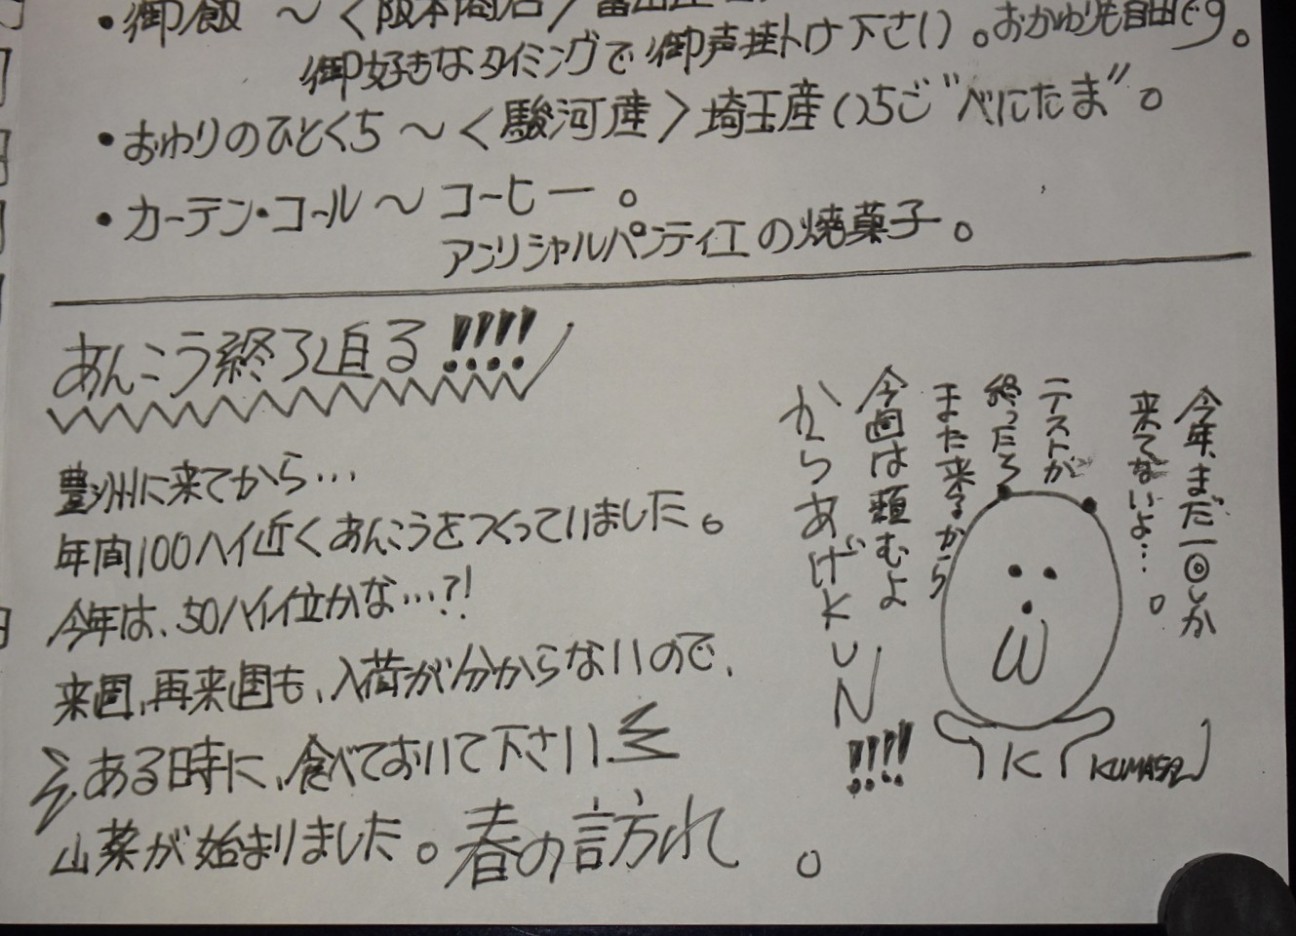 ・御飯 〜 <阪本商店> 富山産コ
御好きなタイミングで御声掛け下さい。おかわりも自由です。
・おわりのひとくち 〜 <駿河産> 埼玉産いちご"べにたま"。
・カーテン・コール 〜 コーヒー。
アンリシャルパンティエの焼菓子。
あんこう終了迫る!!!!
豊洲に来てから…
年間100ハイ近くあんこうをつくっていました。
今年は、50ハイ位かな…?!
来週、再来週も、入荷が分からないので、
ある時に、食べておいて下さい。
山菜が始まりました。春の訪れ。
今年、まだ一回しか
来てないよ…。
テストが
終ったら
また来るから
今回は頼むよ
からあげKUN!!!!
K
KUMASAN